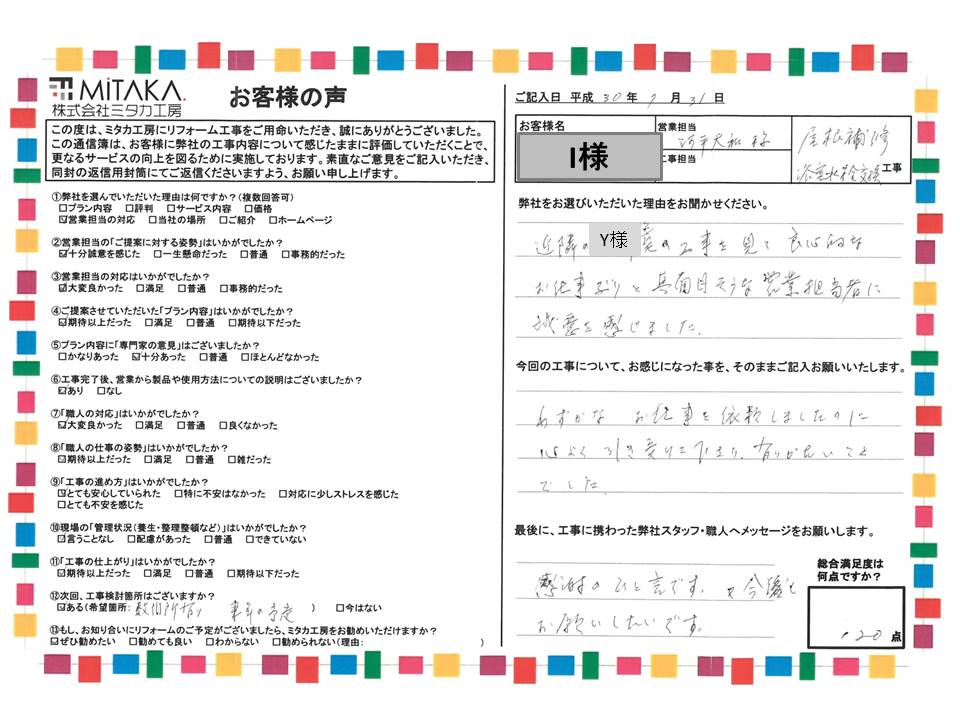 MiTAKA.
株式会社ミタカ工房
お客様の声
この度は、ミタカ工房にリフォーム工事をご用命いただき、誠にありがとうございました。
この通信簿は、お客様に弊社の工事内容について感じたままに評価していただくことで、
更なるサービスの向上を図るために実施しております。素直なご意見をご記入いただき、
同封の返信用封筒にてご返信くださいますよう、お願い申し上げます。
①弊社を選んでいただいた理由は何ですか?(複数回答可)
□プラン内容 □評判 □サービス内容 □価格
☑営業担当の対応 □当社の場所 □ご紹介 □ホームページ
②営業担当の「ご提案に対する姿勢」はいかがでしたか?
☑十分誠意を感じた □一生懸命だった □普通 □事務的だった
③営業担当の対応はいかがでしたか?
☑大変良かった □満足 □普通 □事務的だった
④ご提案させていただいた「プラン内容」はいかがでしたか?
☑期待以上だった □満足 □普通 □期待以下だった
⑤プラン内容に「専門家の意見」はございましたか?
□かなりあった ☑十分あった □普通 □ほとんどなかった
⑥工事完了後、営業から製品や使用方法についての説明はございましたか?
☑あり □なし
⑦「職人の対応」はいかがでしたか?
☑大変良かった □満足 □普通 □良くなかった
⑧「職人の仕事の姿勢」はいかがでしたか?
☑期待以上だった □満足 □普通 □雑だった
⑨「工事の進め方」はいかがでしたか?
☑とても安心していられた □特に不安はなかった □対応に少しストレスを感じた
□とても不安を感じた
⑩現場の「管理状況(養生・整理整頓など)」はいかがでしたか?
☑言うことなし □配慮があった □普通 □できていない
⑪「工事の仕上がり」はいかがでしたか?
☑期待以上だった □満足 □普通 □期待以下だった
⑫次回、工事検討箇所はございますか?
☑ある(希望箇所: 数個所有り 来年の予定 ) □今はない
⑬もし、お知り合いにリフォームのご予定がございましたら、ミタカ工房をお勧めいただけますか?
☑ぜひ勧めたい □勧めても良い □わからない □勧められない(理由: )
ご記入日 平成 30 年 7 月 31 日
お客様名
I様
営業担当
河平大和 様
工事担当
屋根補修
浴室水栓交換 工事
弊社をお選びいただいた理由をお聞かせください。
近隣の Y様 宅の工事を見て良心的な
お仕事ぶりと真面目そうな営業担当者に
誠意を感じました.
今回の工事について、お感じになった事を、そのままご記入お願いいたします。
わずかな お仕事を依頼しましたのに
心よく引き受けて下さり、有りがたいこと
でした.
最後に、工事に携わった弊社スタッフ・職人へメッセージをお願いします。
感謝のひと言です. 又今後も
お願いしたいです.
総合満足度は
何点ですか?
120 点